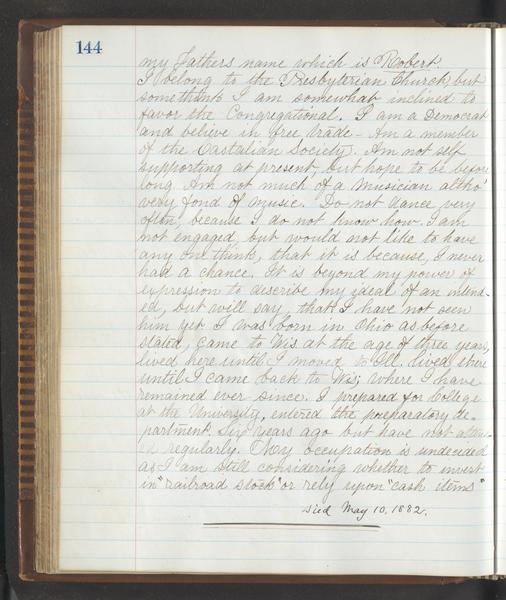 144
my Fathers name which is Robert.
I belong to the Presbyterian Church, but
sometimes I am somewhat inclined to
favor the Congregational. I am a Democrat
and believe in free trade - Am a member
of the Castalian Society. Am not self
supporting at present, but hope to be before
long. Am not much of a musician altho'
very fond of music. Do not dance very
often, because I do not know how. I am
not engaged, but would not like to have
any one think, that it is because, I never
had a chance. It is beyond my power of
expression to describe my ideal of an intend-
ed, but will say, that I have not seen
him yet. I was born in Ohio as before
stated, came to Wis. at the age of three years,
lived here until I moved to Ill. lived there
until I came back to Wis; where I have
remained ever since. I prepared for College
at the University, entered the preparatory de-
partment six years ago but have not attend-
ed regularly. My occupation is undecided
as I am still considering whether to invest
in "railroad stock" or rely upon "cash items"
Died May 10, 1882.